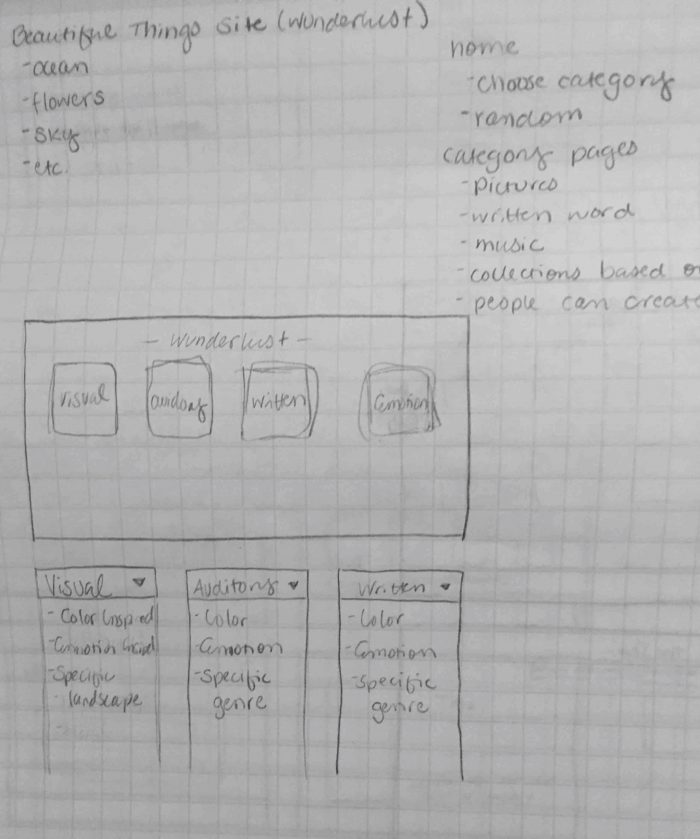 Beautiful Things Site (Wunderlust)
-ocean
-flowers
-sky
-etc.
home
-choose category
-random
category pages
-pictures
-written word
-music
-collections based o
-people can create
- Wunderlust -
Visual
auditory
Written
Emotion
Visual
- Color Inspired
-Emotion
-Specific
- landscape
-
Auditory
-Color
-Emotion
-Specific
genre
Written
-Color
-Emotion
-Specific
genre